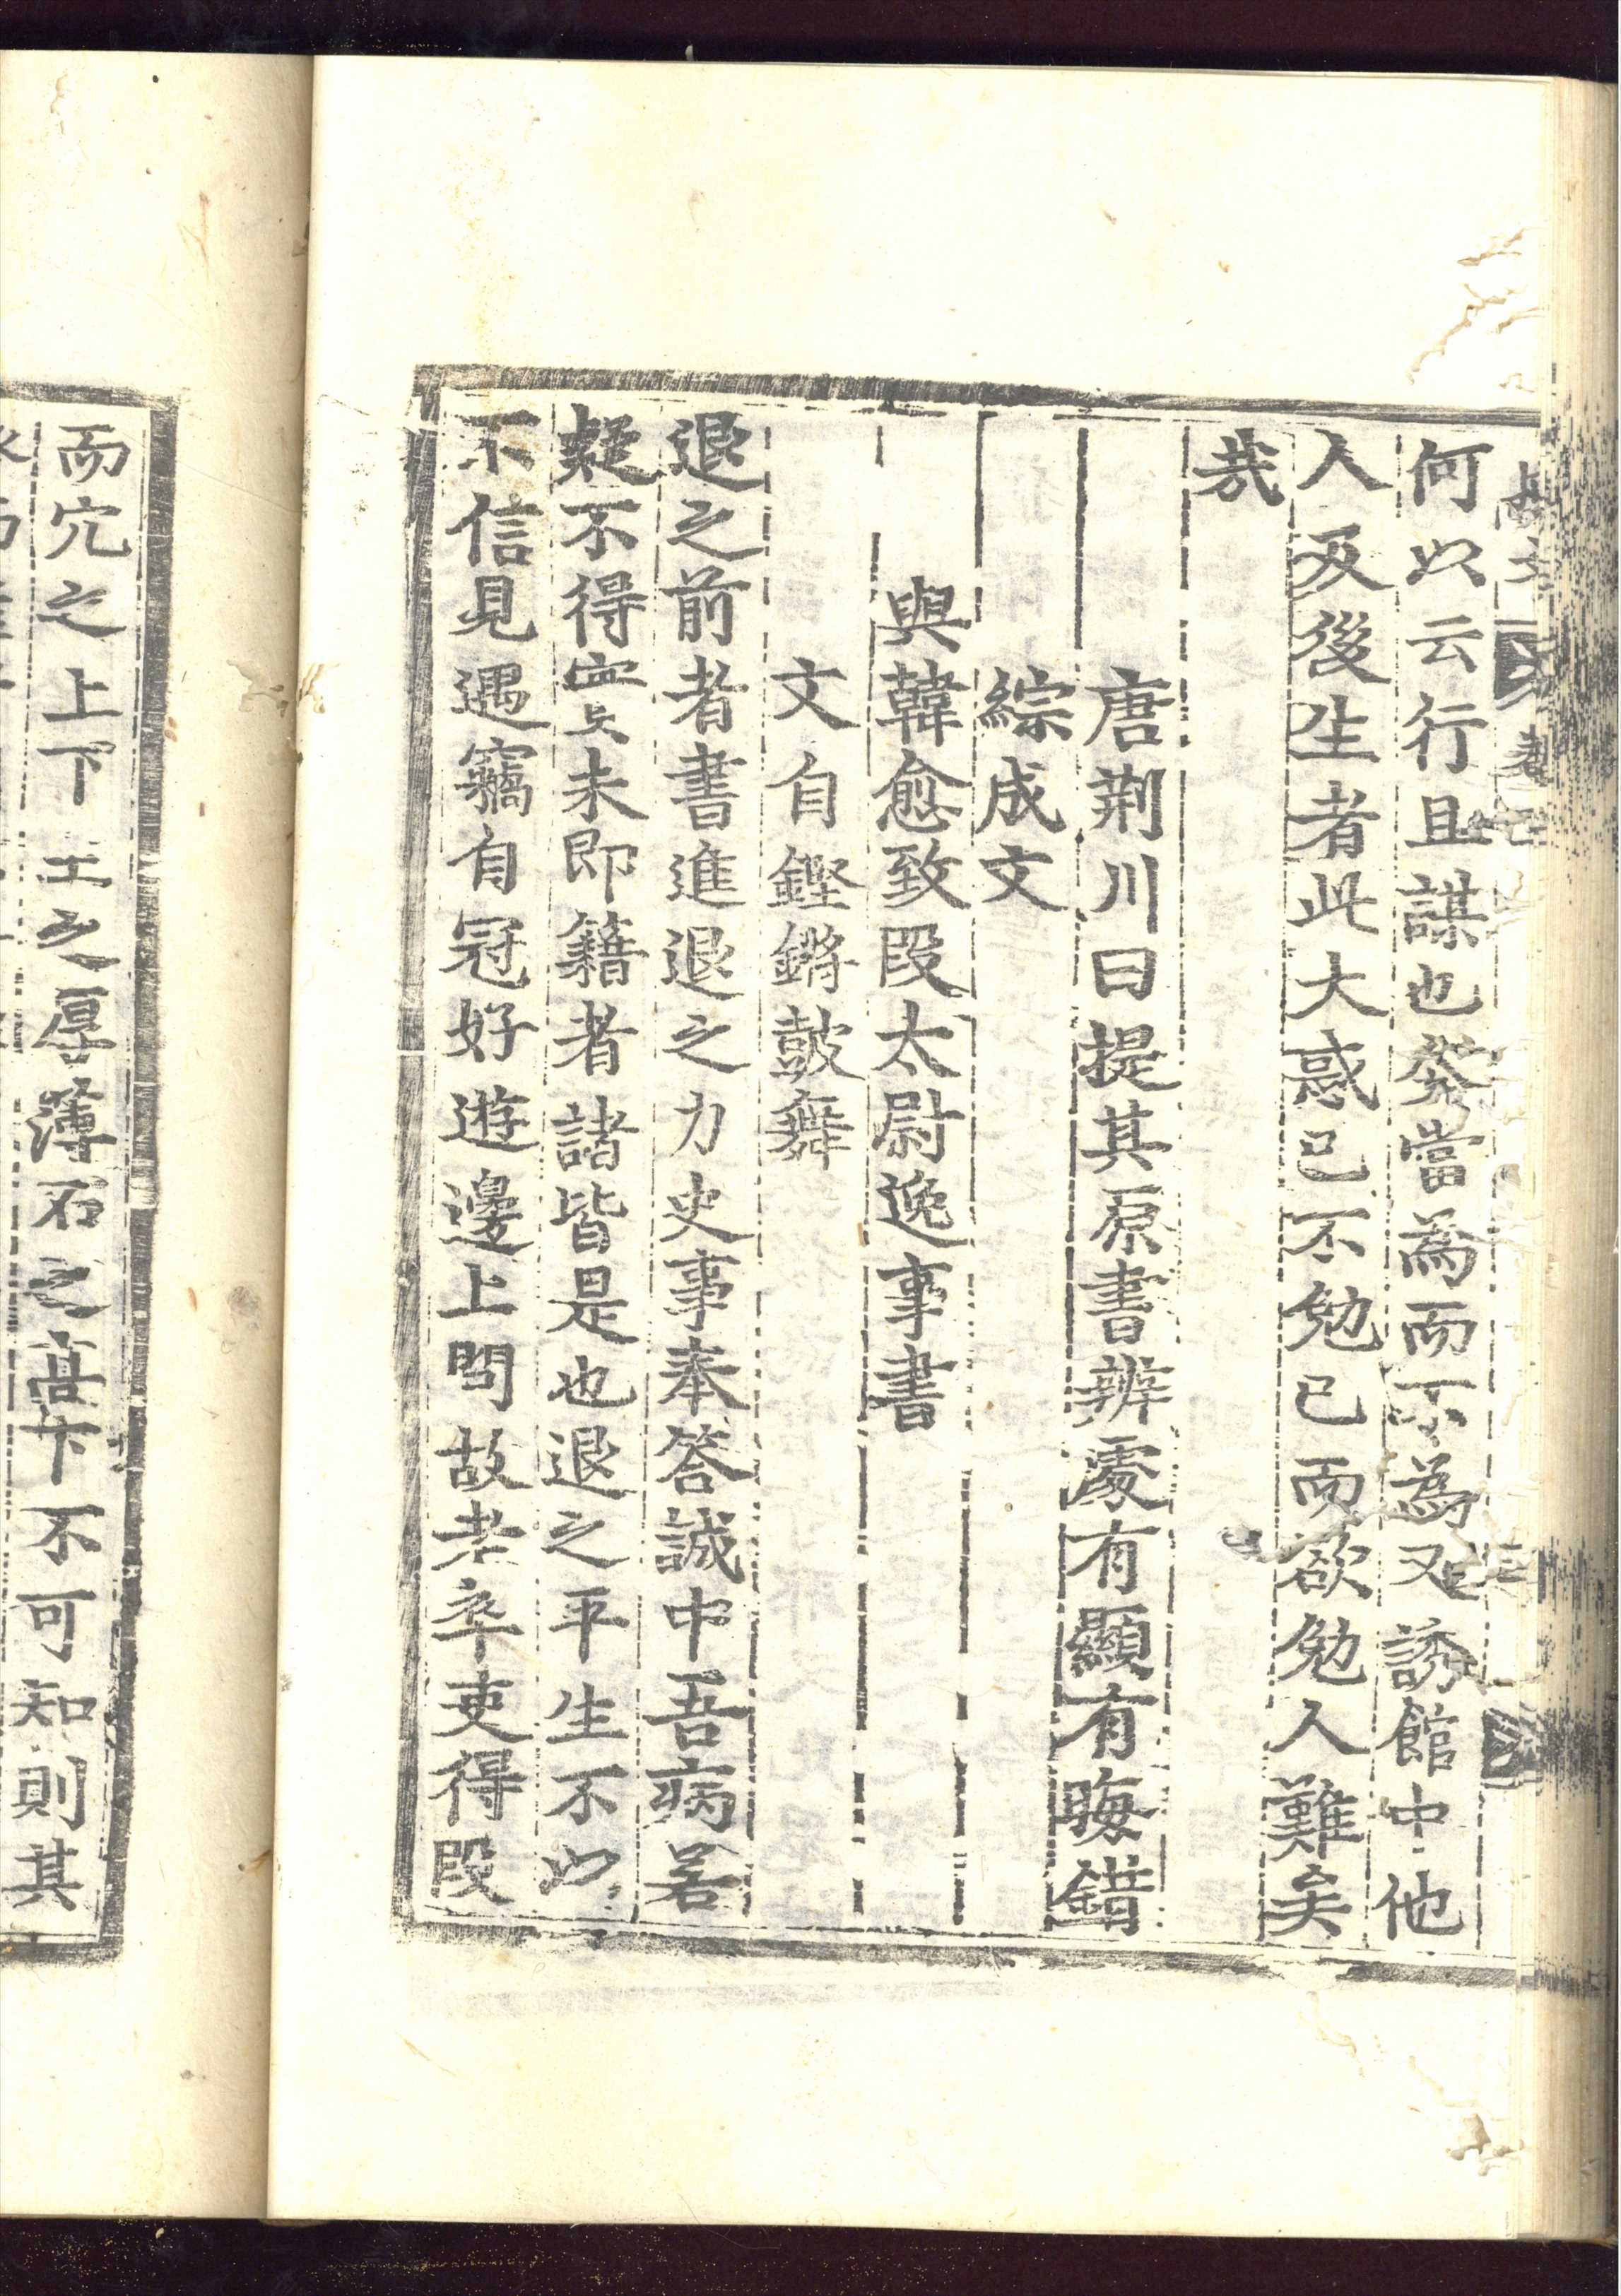 何以云行且謀也今當為而不為又誘館中他
人及後生者此大惑已不勉己而欲勉人難矣
哉
唐荆川曰提其原書辨處有顯有晦錯
綜成文
與韓愈致段太尉逸事書
文自鏗鏘鼓舞
退之前者書進退之力史事奉答誠中吾病若
疑不得實未即籍者諸皆是也退之平生不以
不信見遇竊自冠好遊邊上問故老卒吏得段
而穴之上下土之厚薄石之高下不可知則其